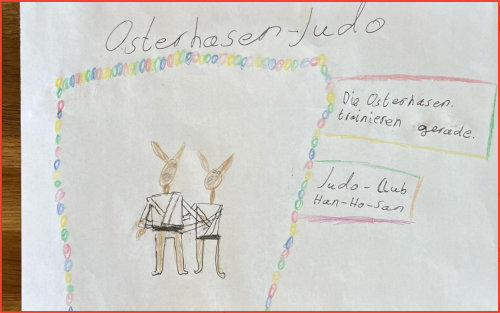 Osterhasen-Judo
Die Osterhasen
trainieren gerade.
Judo-Club
Han-Ho-San